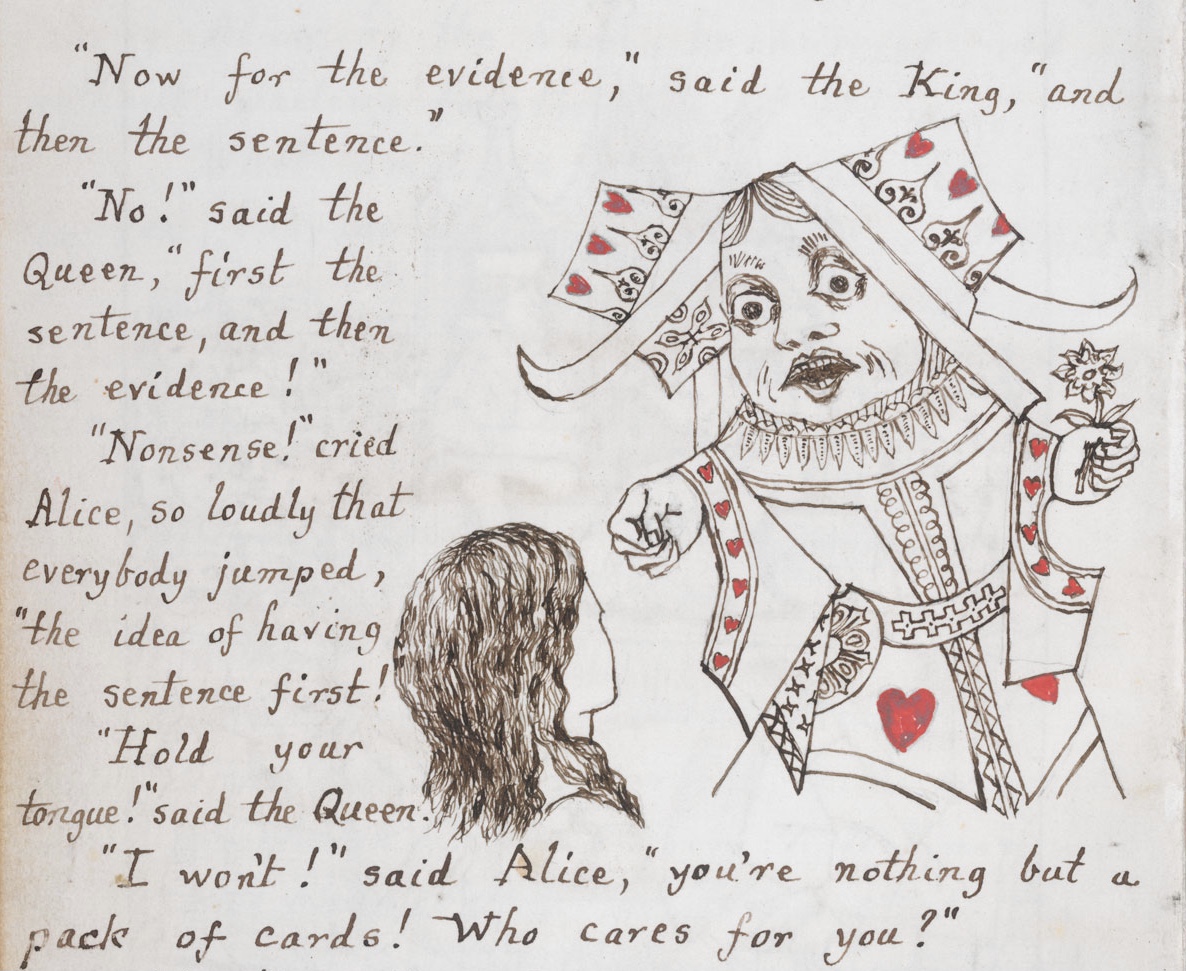 "Now for the evidence," said the King, "and
then the sentence."
"No!" said the
Queen, "first the
sentence, and then
the evidence!"
"Nonsense!" cried
Alice, so loudly that
everybody jumped,
"the idea of having
the sentence first!
"Hold your
tongue!" said the Queen.
"I won't!" said Alice, "you're nothing but a
pack of cards! Who cares for you?"